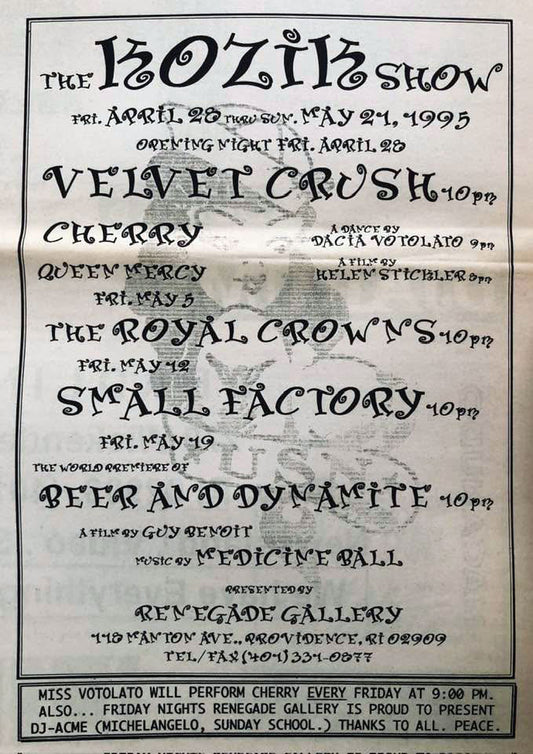 THE KOZIK SHOW
FRI. APRIL 28 THRU SUN. MAY 21, 1995
OPENING NIGHT FRI. APRIL 28
VELVET CRUSH 10 pm
CHERRY A DANCE BY DACIA VOTOLATO 9pm
QUEEN MERCY A FILM BY HELEN STICKLER 8pm
FRI. MAY 5
THE ROYAL CROWNS 10 pm
FRI. MAY 12
SMALL FACTORY 10 pm
FRI. MAY 19
THE WORLD PREMIERE OF
BEER AND DYNAMITE 10 pm
A FILM BY GUY BENOIT
MUSIC BY MEDICINE BALL
PRESENTED BY
RENEGADE GALLERY
118 MANTON AVE., PROVIDENCE, RI 02909
TEL/FAX (401) 331-0877
MISS VOTOLATO WILL PERFORM CHERRY EVERY FRIDAY AT 9:00 PM.
ALSO... FRIDAY NIGHTS RENEGADE GALLERY IS PROUD TO PRESENT
DJ-ACME (MICHELANGELO, SUNDAY SCHOOL.) THANKS TO ALL. PEACE.